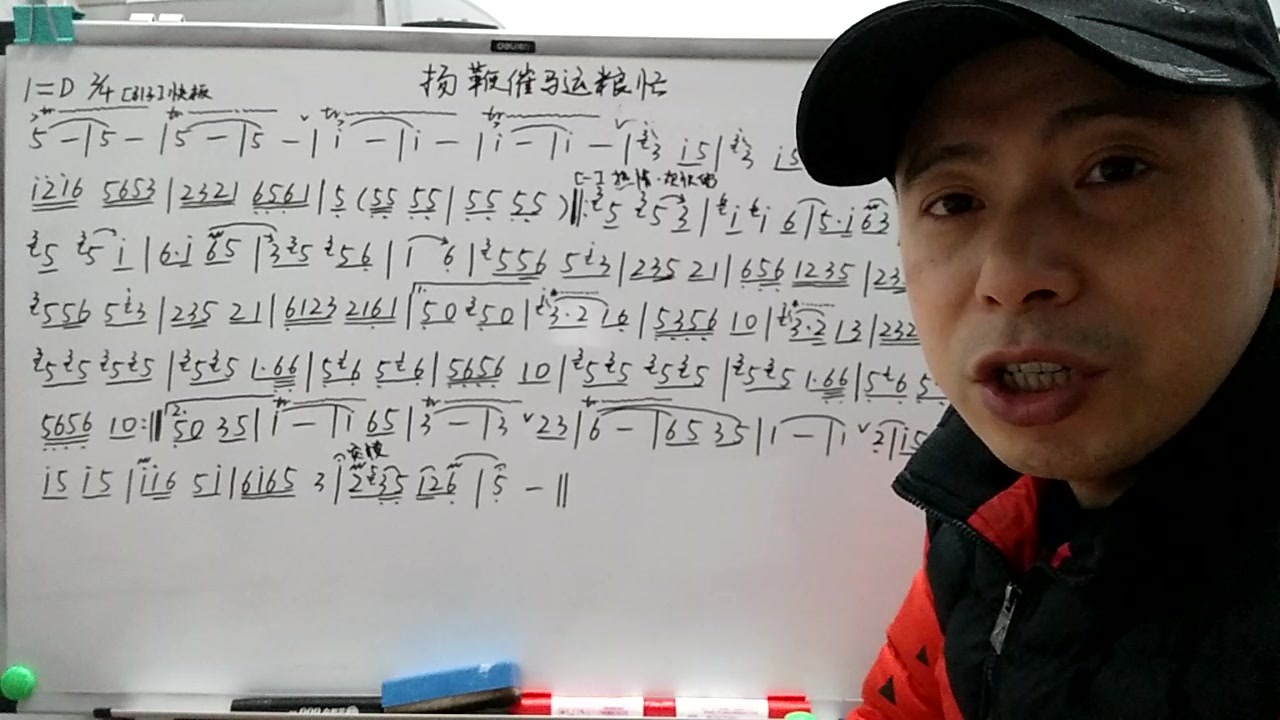 deli
扬鞭催马运粮忙
1=D 2/4 [引子]快板
5 - | 5 - | 5 - | 5 - | i - | i - | i - | i - | 3 i5 | 3 i5
i2i6 5653 | 2321 6561 | 5 (55 55 | 55 55 ) ‖: 5 53 | i i 6 | 5·i 63
[一] 热情·欢快地
5 5 i | 6·i 65 | 35 56 | i 6 | 556 53 | 235 21 | 656 1235 | 23
556 53 | 235 21 | 6123 2161 | 1. 50 50 | 3·2 16 | 5356 10 | 3·2 13 | 232
55 55 | 55 1·66 | 56 56 | 5656 10 | 55 55 | 55 1·66 | 56 5
5656 10 :‖ 2. 50 35 | i - | i 65 | 3 - | 3 23 | 6 - | 65 35 | 1 - | 1 2 | i5
突慢
i5 i5 | ii6 5i | 6165 3 | 235 126 | 5 - ‖